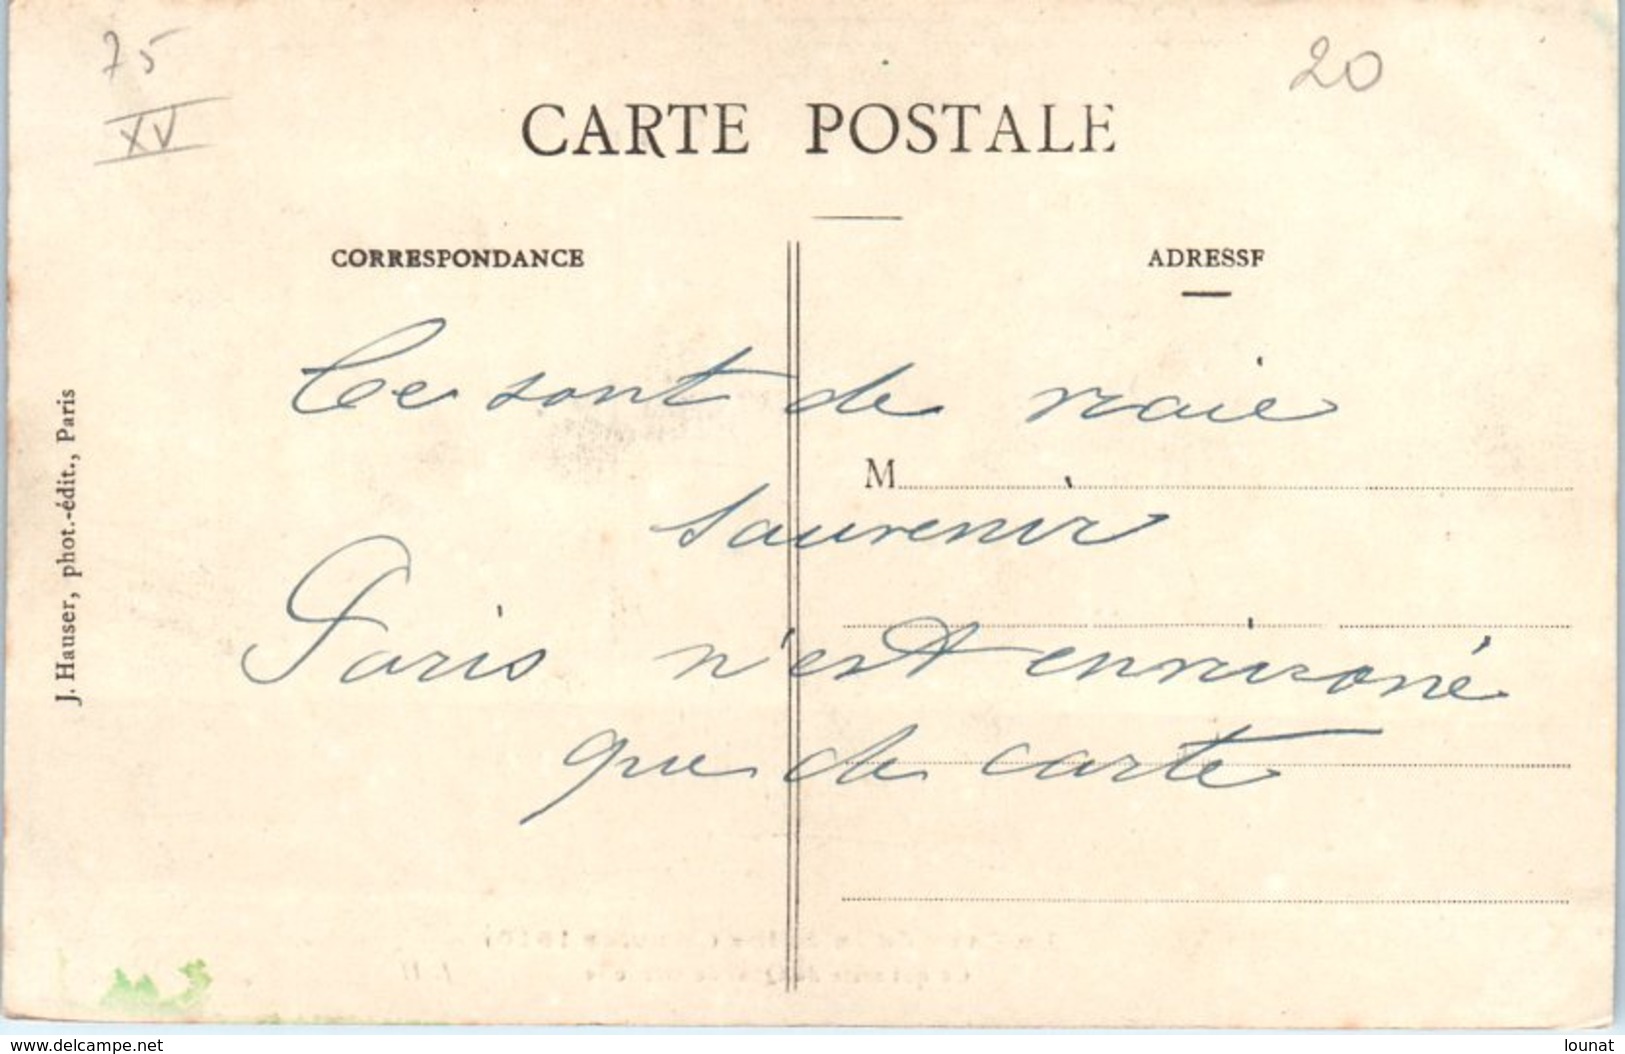 75
XV
20
CARTE POSTALE
CORRESPONDANCE
ADRESSE
Ce sont de vraie
M
souvenir
Paris n'est environé
que de carte
J. Hauser, phot.-édit., Paris
www.delcampe.net
lounat